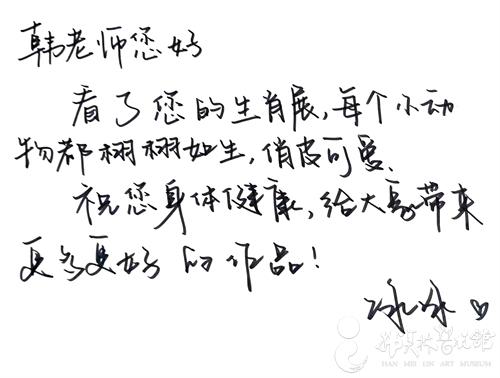 韩老师您好
看了您的生肖展,每个小动
物都栩栩如生,俏皮可爱.
祝您身体健康,给大家带来
更多更好的作品!
冰冰
韩美林艺术馆
HAN MEI LIN ART MUSEUM